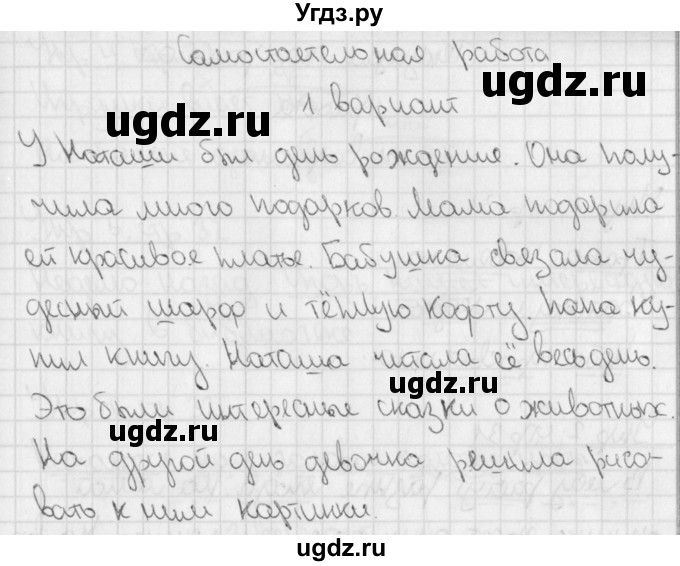 Угдз.ру
Самостоятельная работа
ugdz.ru
ugdz.ru
1 вариант
У Наташи был день рождения. Она полу-
чила много подарков. Мама подарила
ей красивое платье. Бабушка связала чу-
десный шарф и тёплую кофту. Папа ку-
пил книгу. Наташа читала её весь день.
ugdz.ru
Это были интересные сказки о животных.
ugdz.ru
На другой день девочка решила рисо-
вать к ним картинки.
ugdz.ru